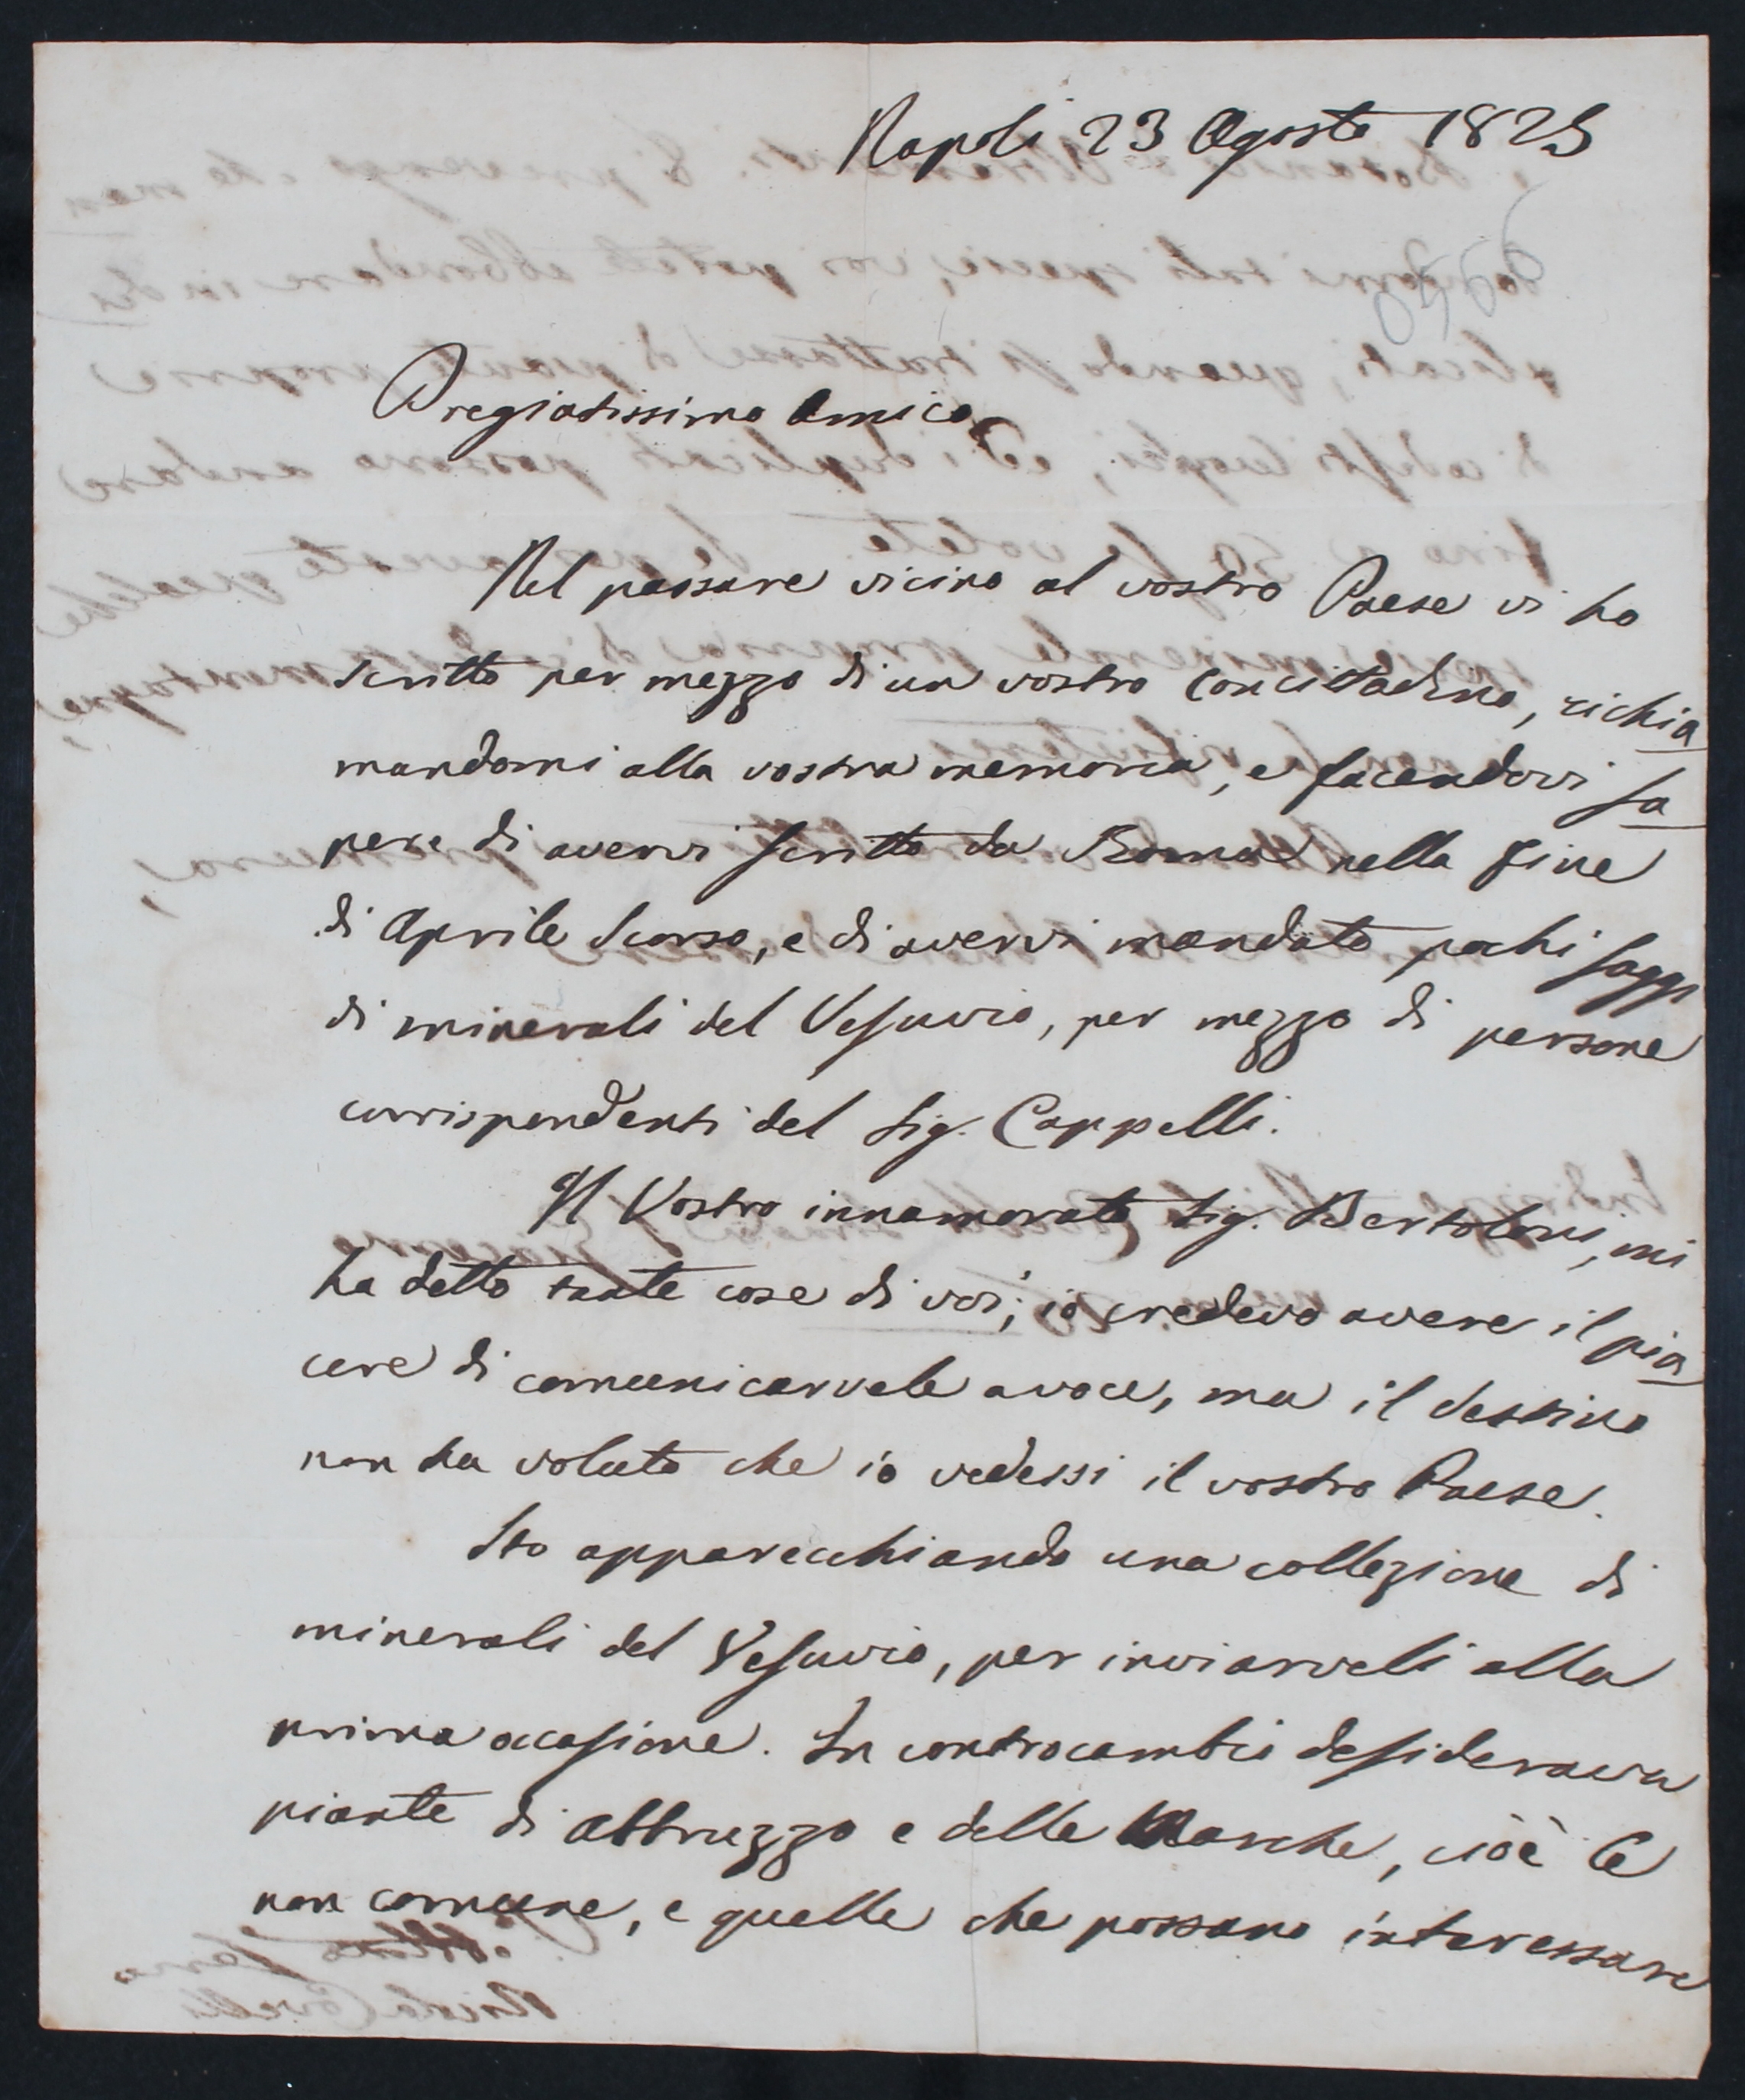 Napoli 23 Agosto 1825
Pregiatissimo Amico
Nel passare vicino al vostro Paese vi ho
scritto per mezzo di un vostro concittadino, richia
mandomi alla vostra memoria, e facendovi sa
pere di avervi scritto da Roma nella fine
di Aprile scorso, e di avervi mandato pochi saggi
di minerali del Vesuvio, per mezzo di persone
corrispondenti del Sig. Cappelli.
Il Vostro innamorato Sig. Bertoloni, mi
ha detto tante cose di voi; io credevo avere il pia
cere di comunicarvele a voce, ma il destino
non ha voluto che io vedessi il vostro Paese.
Sto apparecchiando una collezione di
minerali del Vesuvio, per inviarveli alla
prima occasione. In controcambio desiderava
piante di Abbruzzo e delle Marche, cioè le
non comune, e quelle che possano interessare